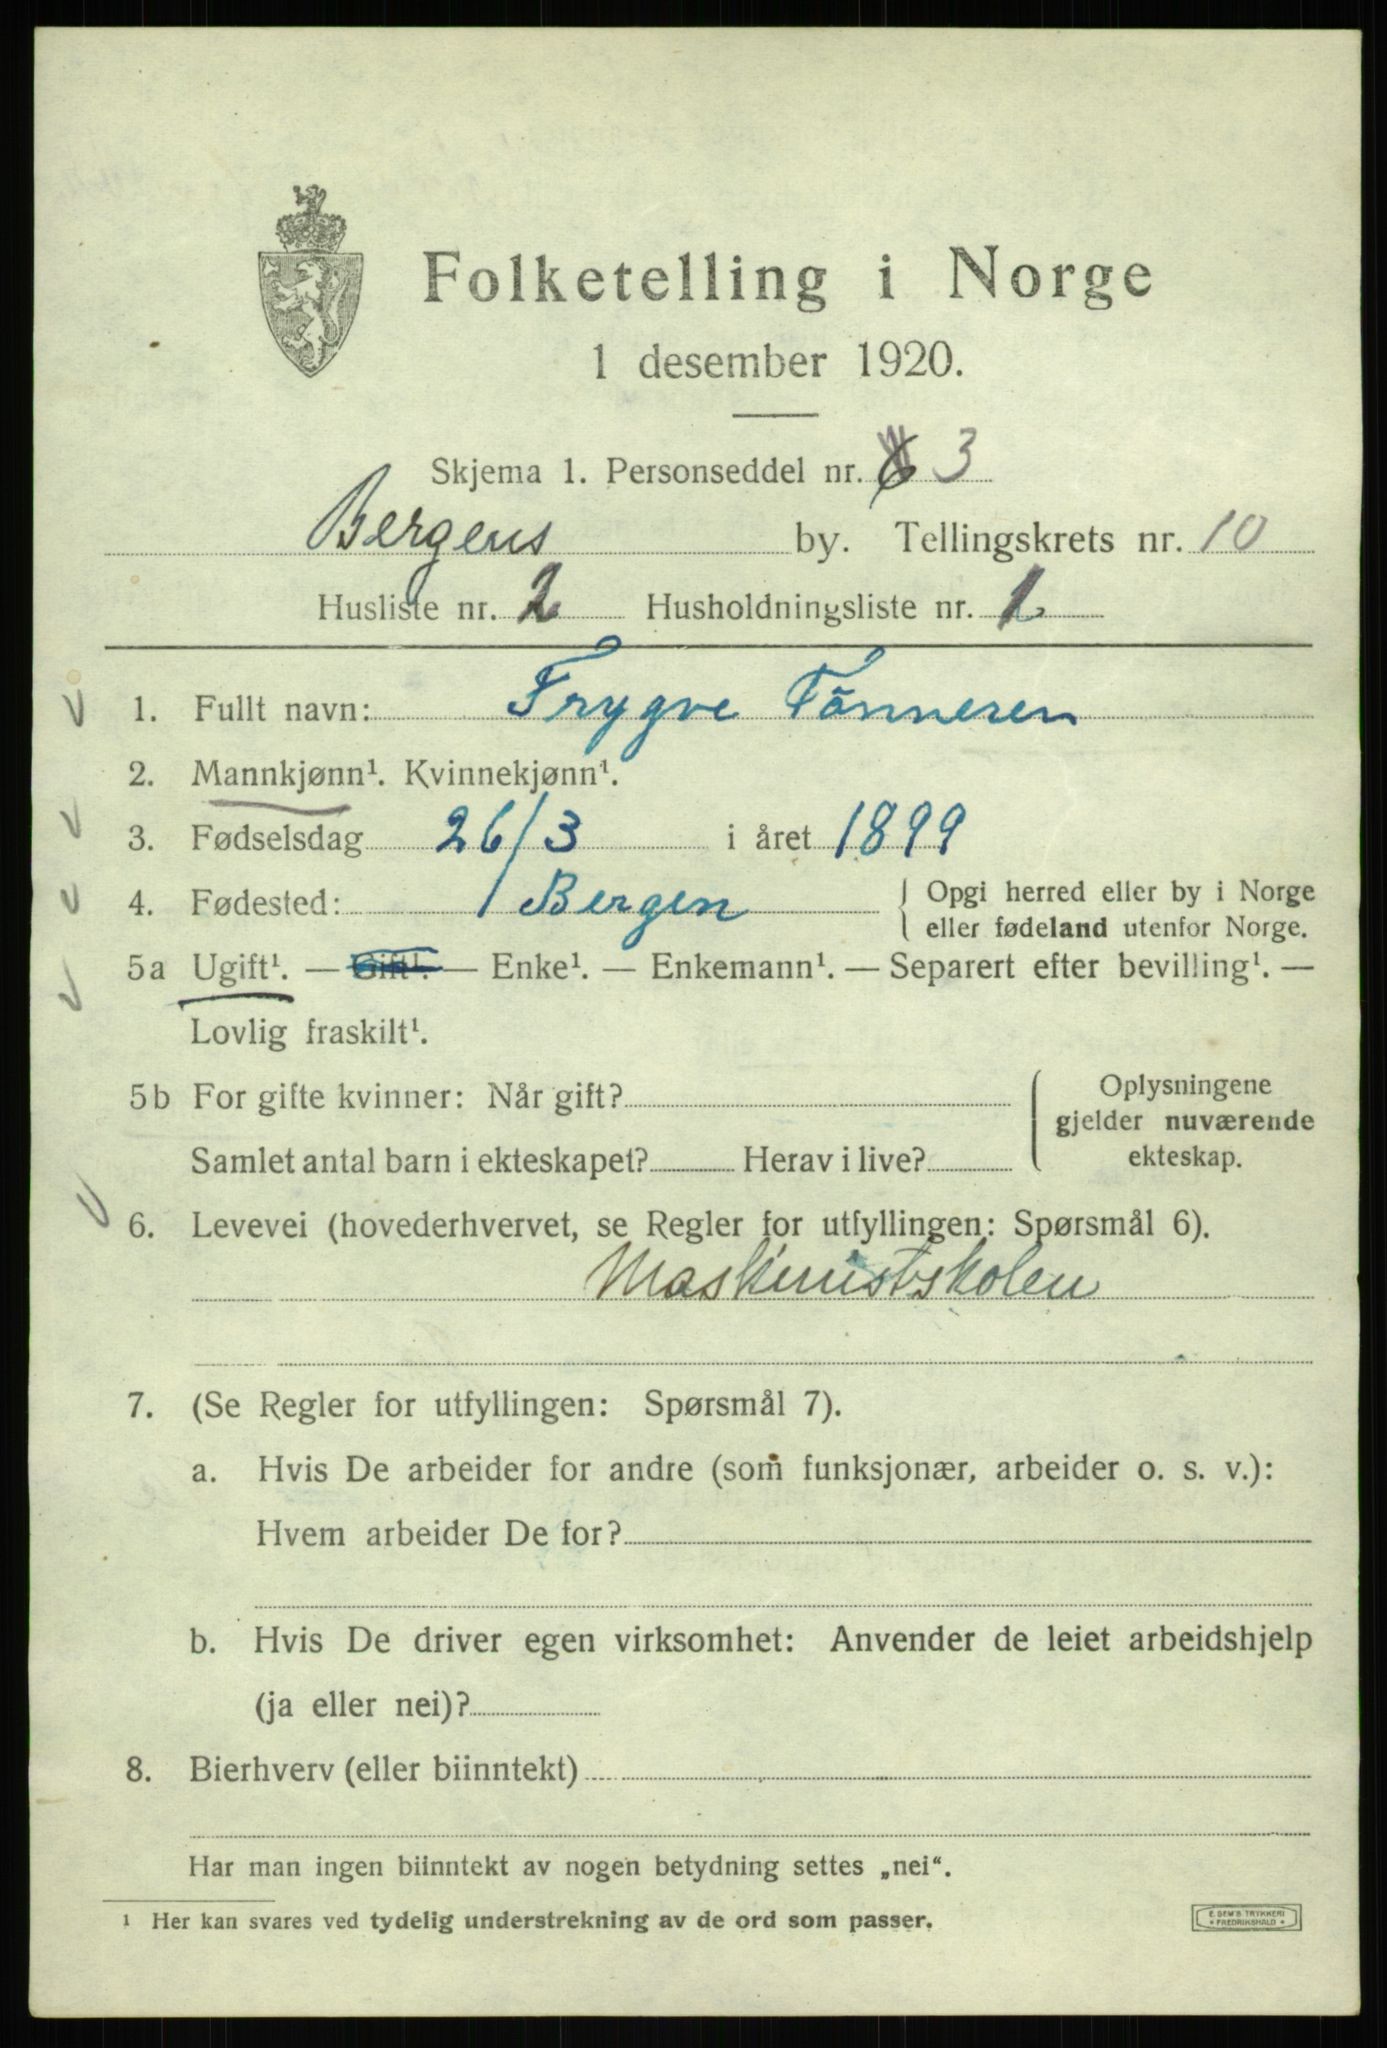 Folketelling i Norge
1 desember 1920.
Skjema 1. Personseddel nr. 3
Bergens by. Tellingskrets nr. 10
Husliste nr. 2 Husholdningsliste nr. 1
1. Fullt navn: Trygve Tönnesen
2. Mannkjønn¹. Kvinnekjønn¹.
3. Fødselsdag 26/3 i året 1899
4. Fødested: Bergen { Opgi herred eller by i Norge
eller fødeland utenfor Norge.
5a Ugift¹. — Gift¹. — Enke¹. — Enkemann¹. — Separert efter bevilling¹. —
Lovlig fraskilt¹.
5b For gifte kvinner: Når gift?
Samlet antal barn i ekteskapet? Herav i live?
Oplysningene
gjelder nuværende
ekteskap.
6. Levevei (hovederhvervet, se Regler for utfyllingen: Spørsmål 6).
Maskinistskolen
7. (Se Regler for utfyllingen: Spørsmål 7).
a. Hvis De arbeider for andre (som funksjonær, arbeider o. s. v.):
Hvem arbeider De for?
b. Hvis De driver egen virksomhet: Anvender de leiet arbeidshjelp
(ja eller nei)?
8. Bierhverv (eller biinntekt)
Har man ingen biinntekt av nogen betydning settes „nei“.
¹ Her kan svares ved tydelig understrekning av de ord som passer.
E. SEM'S TRYKKERI
FREDRIKSHALD